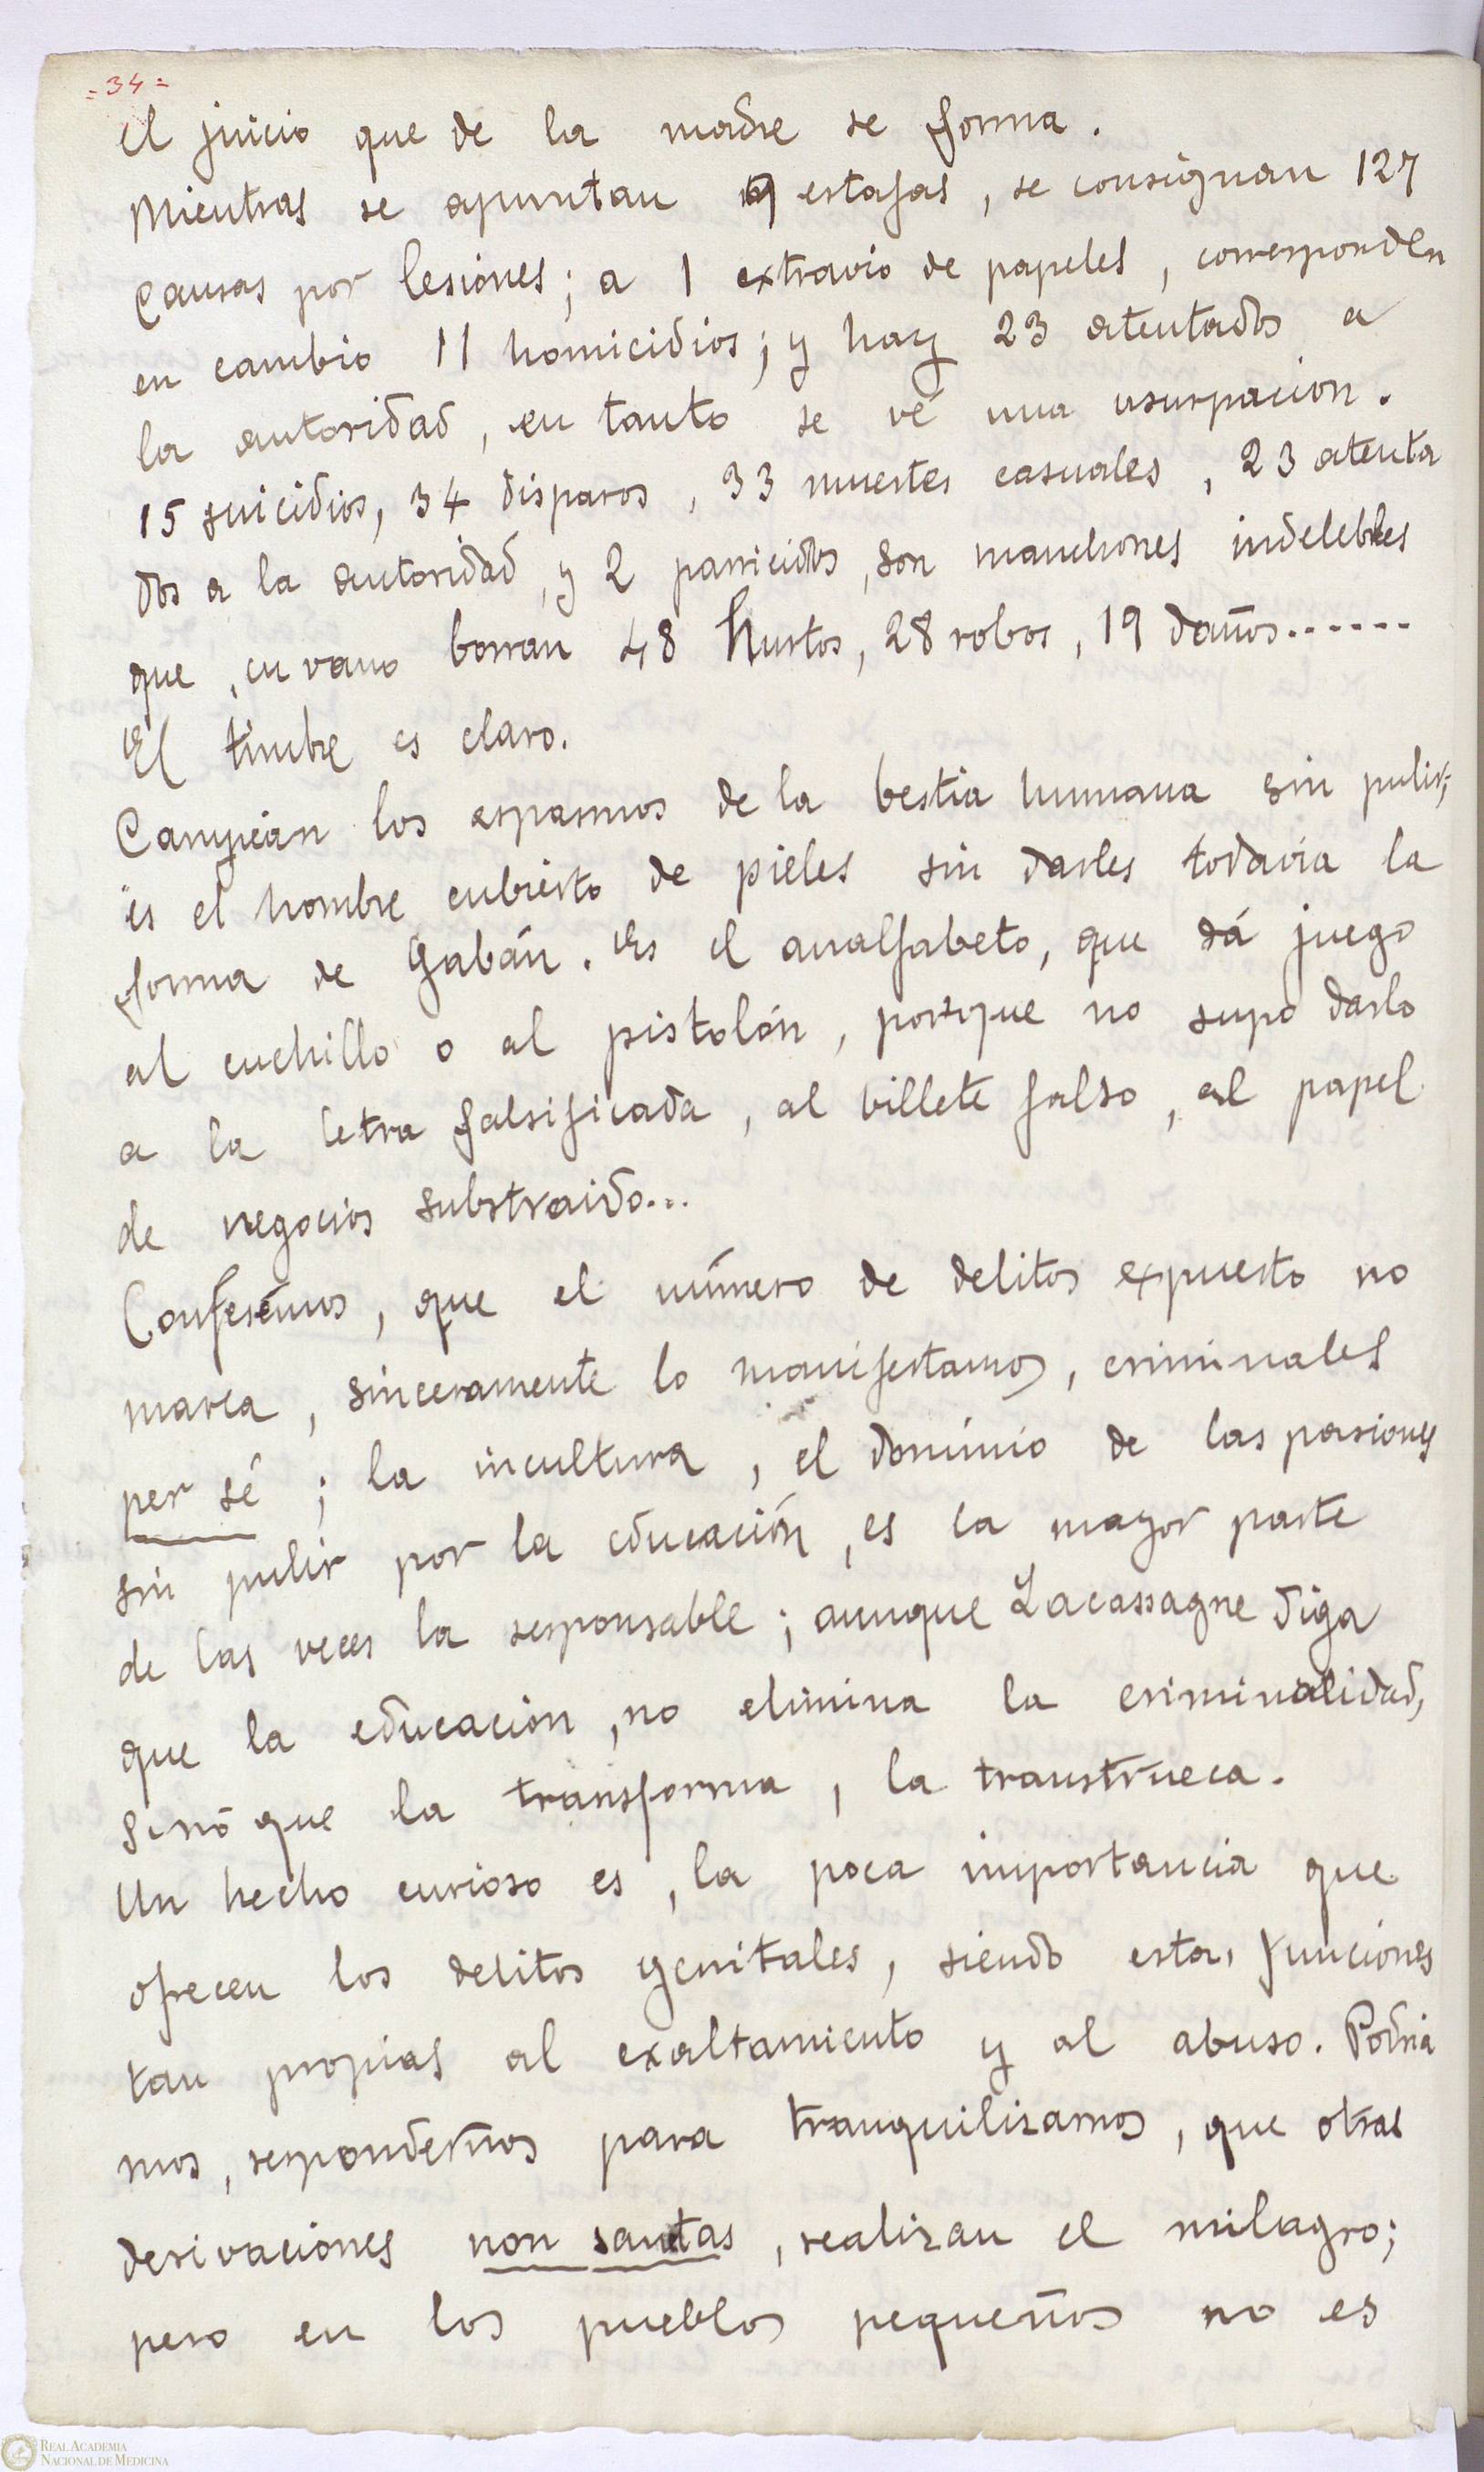 =34=
el juicio que de la madre se forma.
Mientras se apuntan 9 estafas, se consignan 127
causas por lesiones; a 1 extravio de papeles, corresponden
en cambio 11 homicidios; y hay 23 atentados a
la autoridad, en tanto se vé una usurpacion.
15 suicidios, 34 disparos, 33 muertes casuales, 23 atenta
dos a la autoridad, y 2 parricidios, son manchones indelebles
que, en vano borran 48 hurtos, 28 robos, 19 daños......
El timbre es claro.
Campean los espasmos de la bestia humana sin pulir,
es el hombre cubierto de pieles sin darles todavia la
forma de gabán. Es el analfabeto, que dá juego
al cuchillo o al pistolón, porque no supo darlo
a la letra falsificada, al billete falso, al papel
de negocios substraido...
Confesémos, que el número de delitos expuesto no
marca, sinceramente lo manifestamos, criminales
per sé; la incultura, el dominio de las pasiones
sin pulir por la educación, es la mayor parte
de las veces la responsable; aunque Lacassagne diga
que la educacion, no elimina la criminalidad,
sinó que la transforma, la transtrueca.
Un hecho curioso es, la poca importancia que
ofrecen los delitos genitales, siendo estas funciones
tan propias al exaltamiento y al abuso. Podria
mos, respondernos para tranquilizarnos, que otras
derivaciones non santas, realizan el milagro;
pero en los pueblos pequeños no es
REAL ACADEMIA
NACIONAL DE MEDICINA